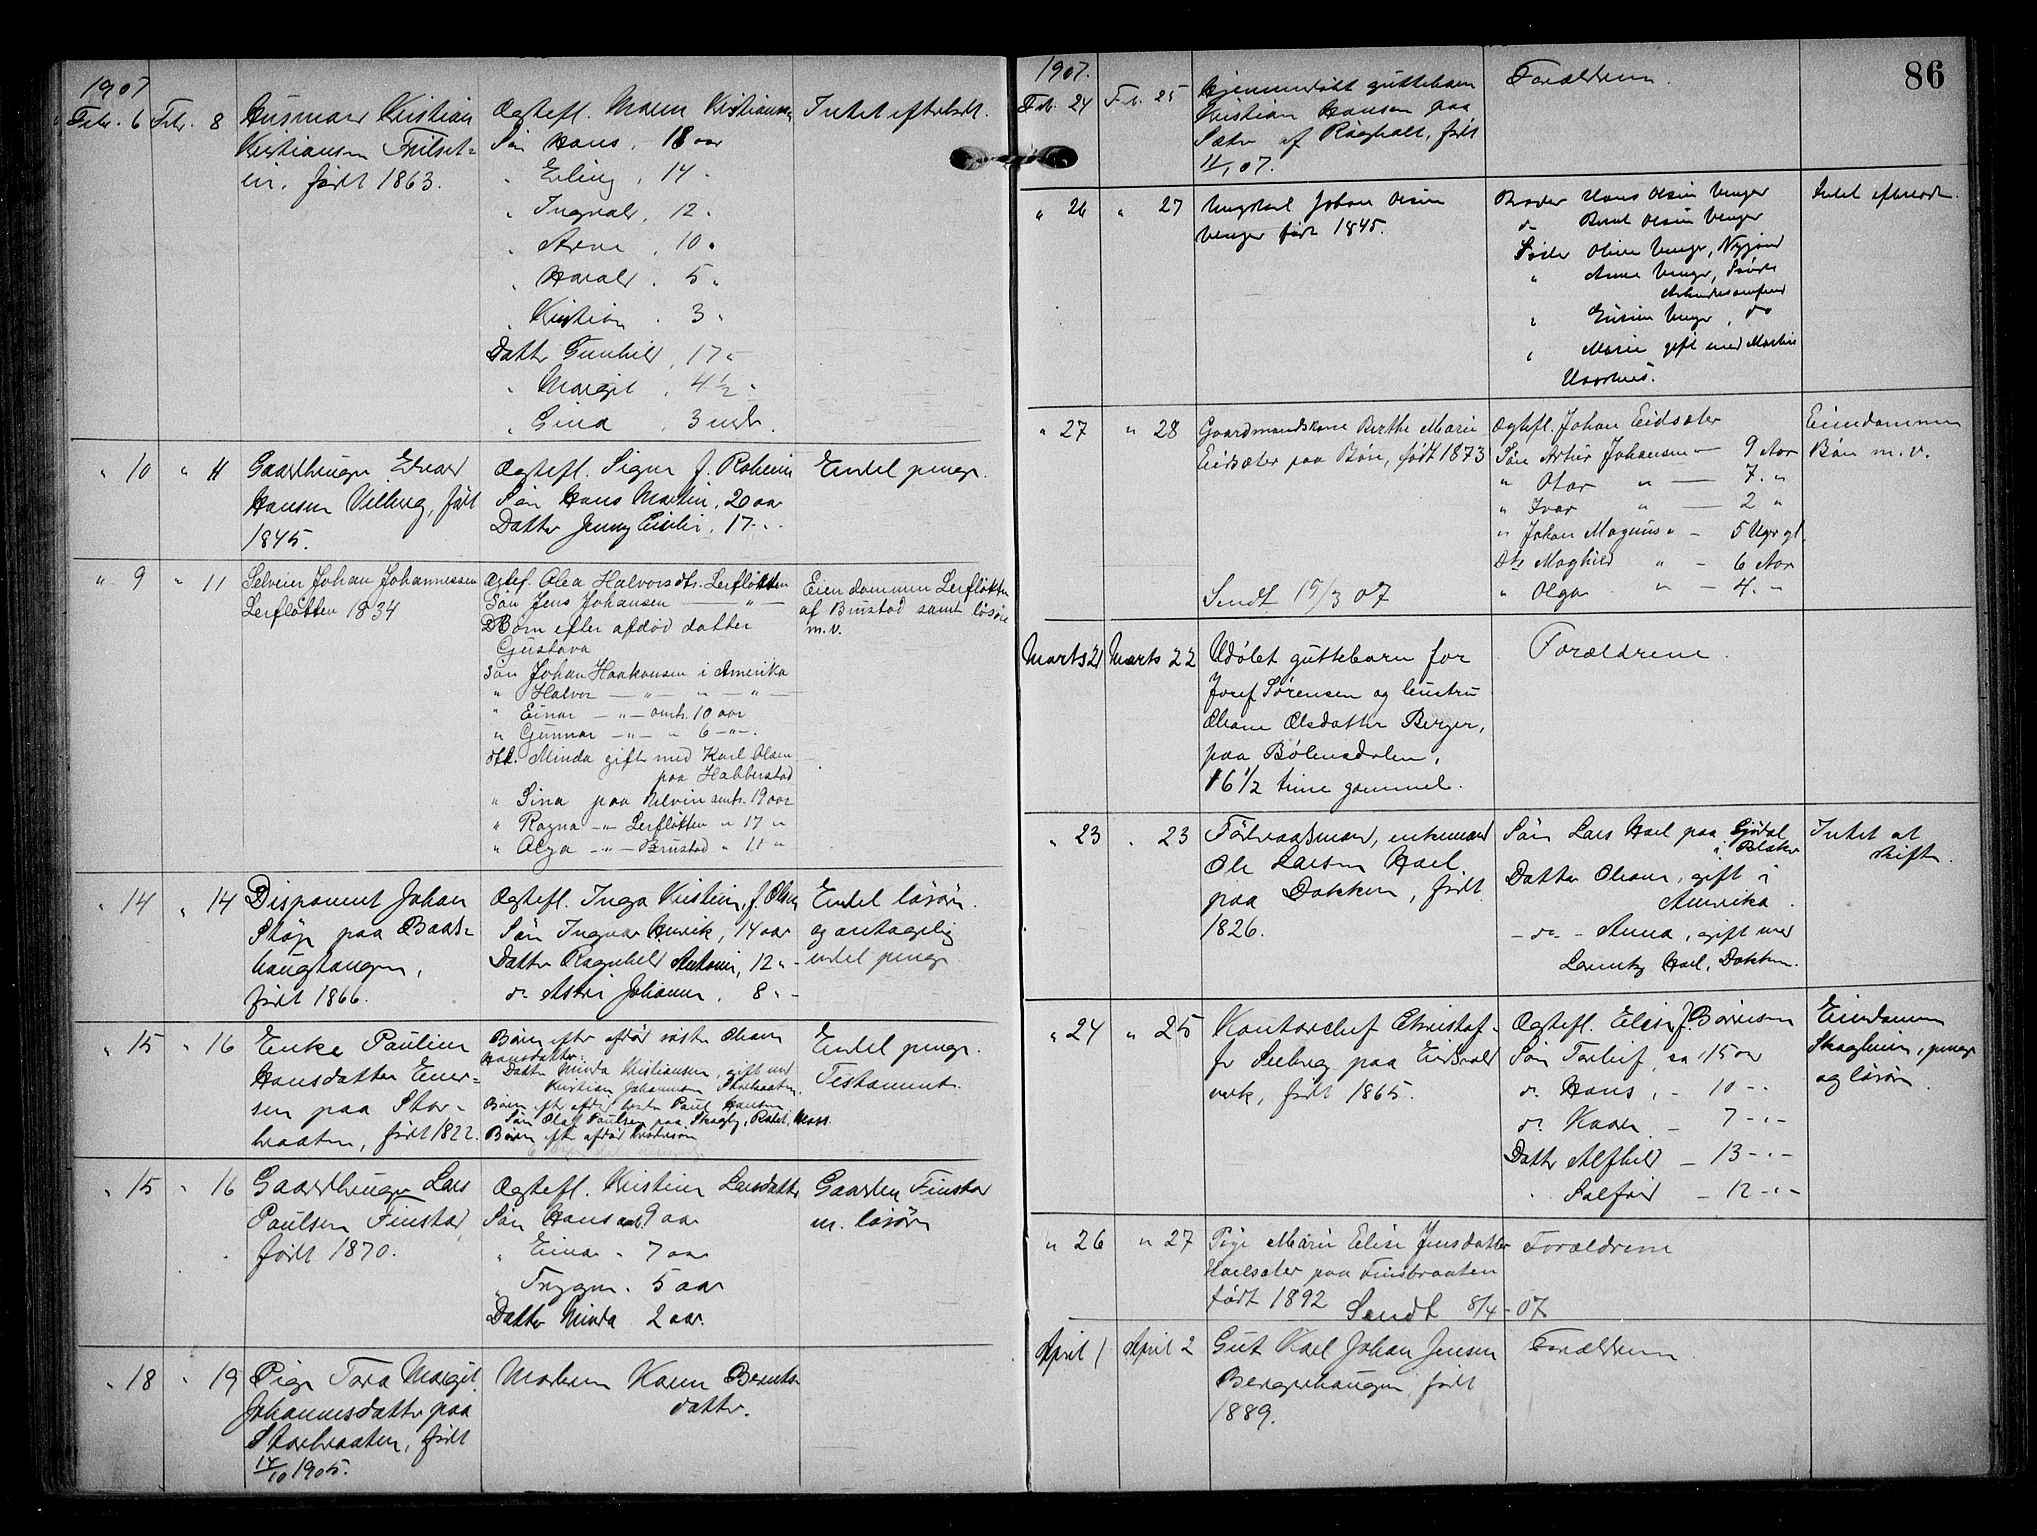 1907
Febr. 6 Febr. 8 Husmand Kristian Ægtefl. Maren Kristiansen Intet efterladt.
Kristiansen Søn Hans, 18 aar
født 1863. " Erling, 14 "
" Ingvald, 12 "
" Arne, 10 "
" Harald, 5 "
" Kristian, 3 "
Datter Gunhild, 17 "
" Margit, 4 1/2 "
" Gina, 3 mdr.
" 10 " 11 Gaardbruger Edvard Ægtefl. Signe f. Endel penge.
Hansen Vilberg, født Søn Hans Martin, 20 aar
1845. Datter Jenny Emilie, 17 "
" 9 " 11 Selveier Johan Johannessen Ægtef. Olea Halvorsdtr. Lerfløtten Eiendommen Lerfløtten
Lerfløtten 1834 Søn Jens Johansen — " — af Brustad samt løsøre
Børn efter afdød datter m.v.
Gustava
Søn Johan Haakonsen i Amerika
" Halvor — " — " — " —
" Einar — " — omtr. 10 aar
" Gunnar — " — " 6 — " —
Dtr. Minda gift med Karl Olsen
paa Habberstad
" Sina paa omtr. 19 aar
" Ragna — " — Lerfløtten " 17 "
" Olga — " — Brustad " 11 "
" 14 " 14 Disponent Johan Ægtefl. Inga Kristine, f. Olsen Endel løsøre
Støp paa Baads- Søn Ingvar Henrik, 14 aar og antagelig
haugtangen, Datter Ragnhild Antonie, 12 " endel penge
født 1866. do Astri Johanne, 8 " -
" 15 " 16 Enke Pauline Børn efter afdød søster Oleane Endel penge.
Hansdatter Ener- Hansdatter: Testament.
sen paa Stor- Datter Minda Kristiansen, gift med
braaten, født 1822. Kristian Johannesen Storbraaten
Børn efter afdød broder Paul Hansen
Søn Olaf Paulsen paa Skogly, Moss
Børn efter afdød
" 15 " 16 Gaardbruger Lars Ægtefl. Kristine Larsdatter Gaarden Finstad
Paulsen Finstad, Søn Hans 9 aar m. løsøre
født 1870. " Einar " 7 aar
" Trygve " 5 aar
Datter Minda 2 aar.
" 18 " 19 Pige Tora Margit Moderen Karen Bernts-
Johannesdatter paa datter.
Storbraaten, født
14/10 1905.
86
1907.
Feb. 24 Feb. 25 Hjemmedøbt guttebarn Forældrene.
Kristian Hansen paa
Sætre af Raaholt, født
11/1 07.
" 26 " 27 Ungkarl Johan Olsen Broder Hans Olsen Venger Intet efterladt.
Venger født 1845. do Bernt Olsen Venger
Søster Oline Venger,
" Anne Venger,
" Venger, do
" Marie gift med Martin
" 27 " 28 Gaardmandskone Berthe Marie Ægtefl. Johan Eidsæter Eiendommen
Eidsæter paa Bøn, født 1873 Søn Artur Johansen — 9 Aar Bøn m. v.
" Otar " — 7 "
" Ivar " — 2 "
" Johan Magnus " — 5 Uger gl.
Dtr Maghild " — 6 Aar
Sendt 15/3 07 " Olga " — 4 "
Marts 21 Marts 22 Udøbt guttebarn for Forældrene.
Josef Sørensen og hustru
Oleane Olsdatter Berger,
paa Bølensdalen,
16 1/2 time gammel.
" 23 " 23 Føderaadsmand, enkemand Søn Lars Hael paa Gjødal Intet at
Ole Larsen Hael i Blaker skifte.
paa Dokken, født Datter Oleane, gift i
1826. Amerika.
— do — Anna, gift med
Hael, Dokken.
" 24 " 25 Kontorchef Christof- Ægtefl. Elise f. Børresen Eiendommen
fer Seeberg paa Eidsvold Søn Torleif, ca 15 aar Skogheim, penge
verk, født 1865. do Hans, - 10 - " og løsøre
do Kaare - 7 - " -
Datter Alfhild — 13 - " -
" Solfrid — 12 - " -
" 26 " 27 Pige Marie Elise Jensdatter Forældrene
Haelsæter paa Finsbraaten
født 1892 Sendt 8/4 - 07
April 1 April 2 Gut Karl Johan Jensen Forældrene
Bergerhaugen, født
1889.